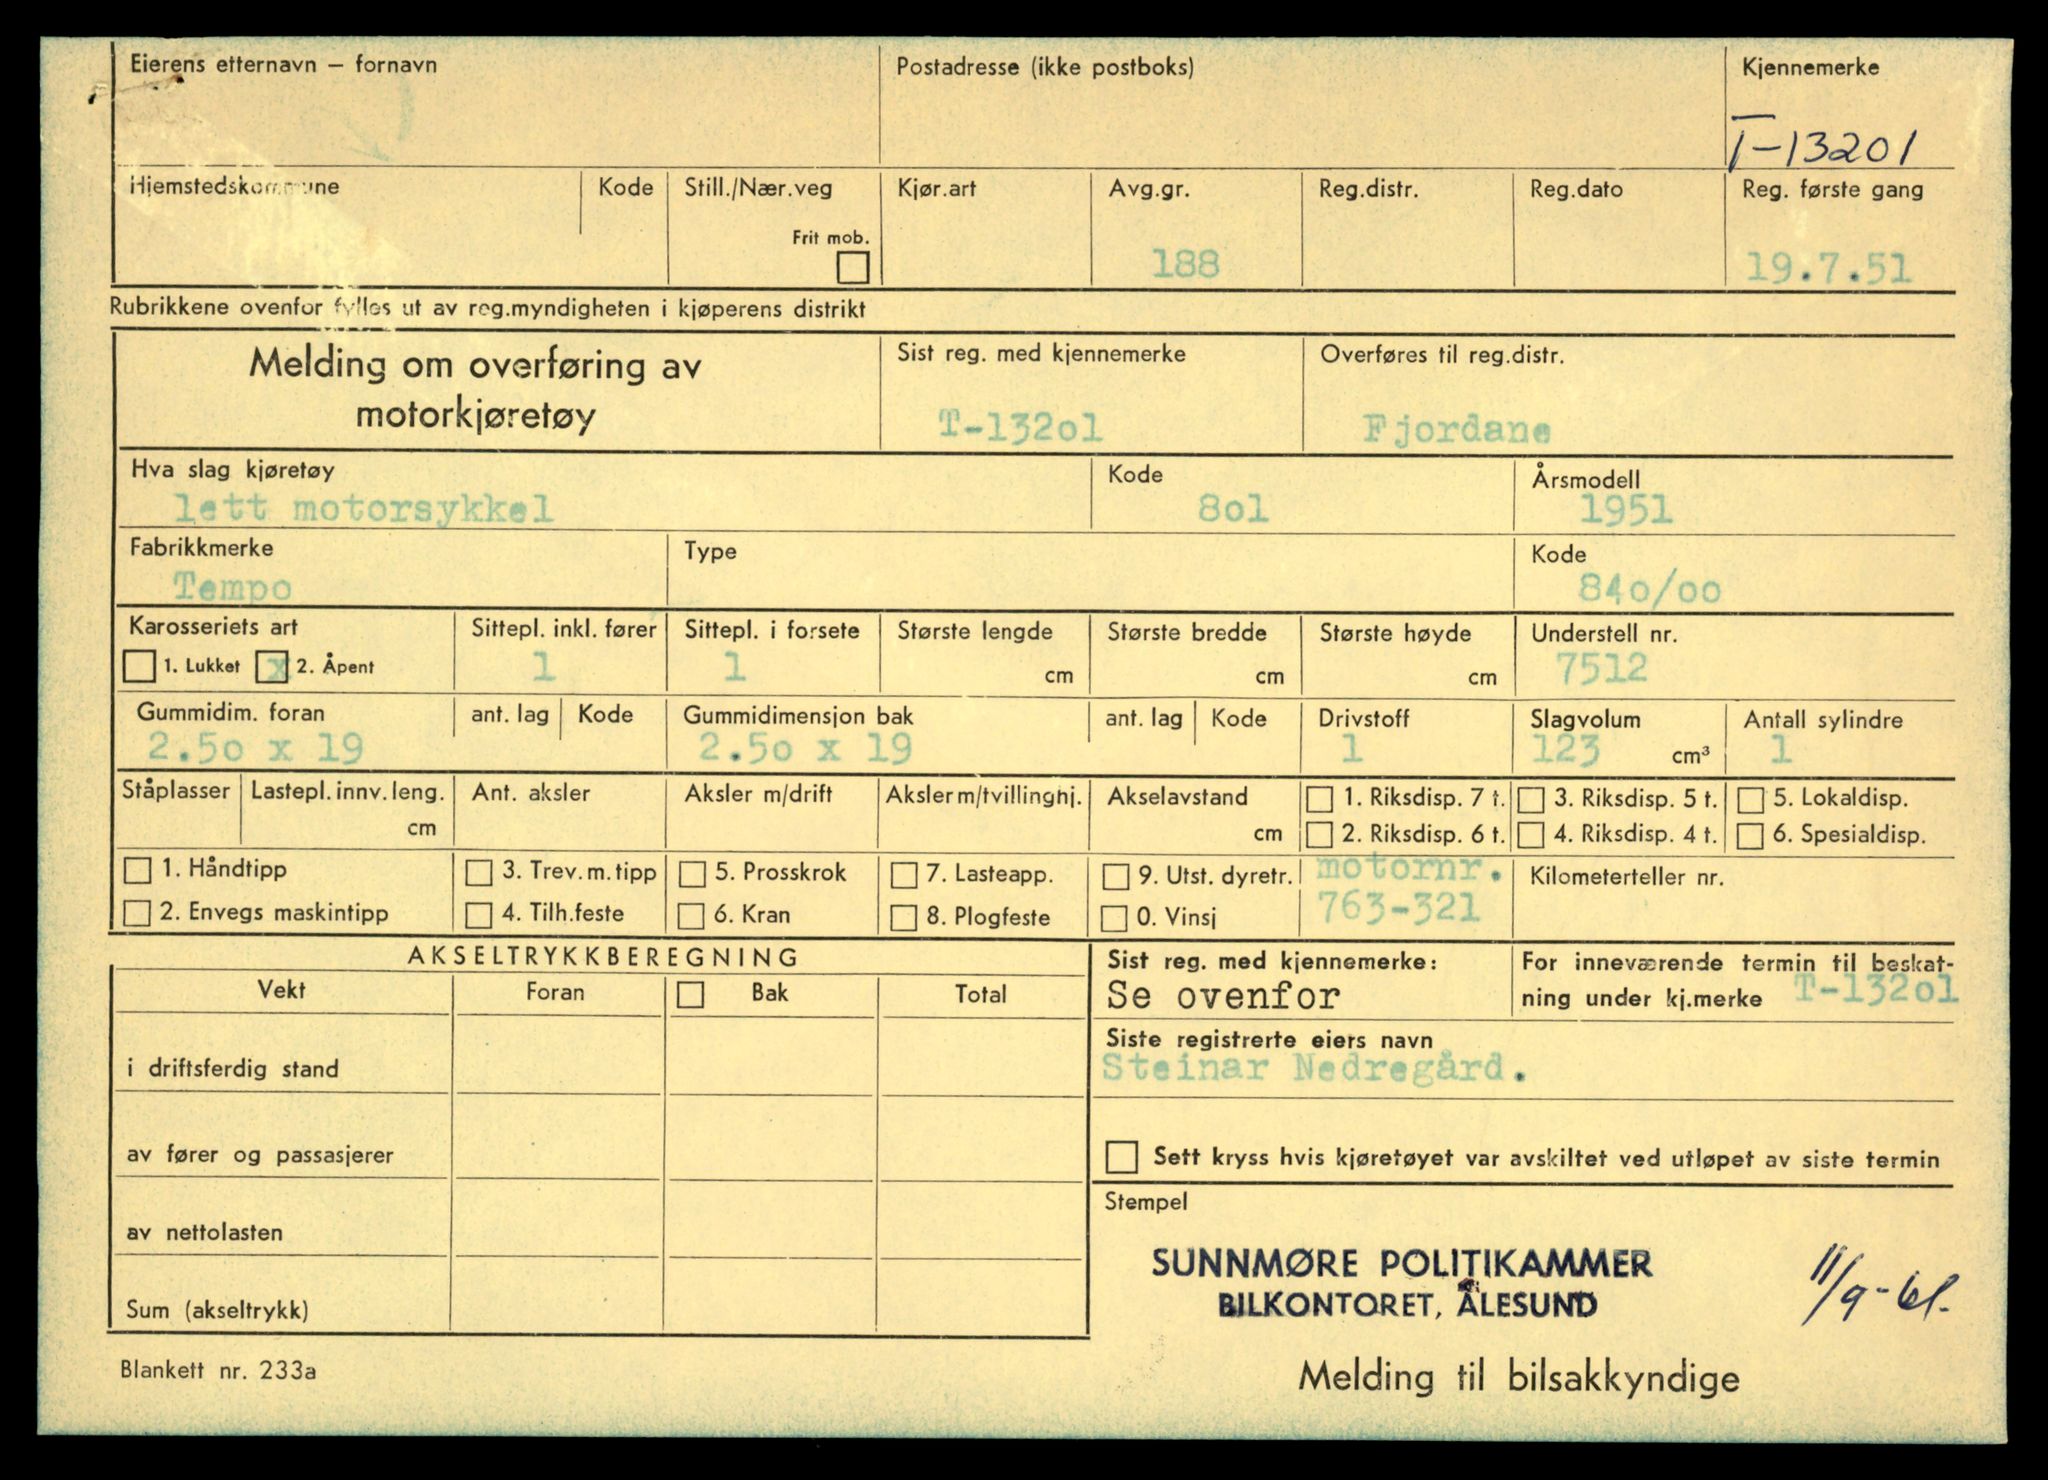 Eierens etternavn – fornavn Postadresse (ikke postboks) Kjennemerke
T-13201
Hjemstedskommune Kode Still./Nær.veg Kjør.art Avg.gr. Reg.distr. Reg.dato Reg. første gang
Frit mob.
188 19.7.51
Rubrikkene ovenfor fylles ut av reg.myndigheten i kjøperens distrikt
Melding om overføring av Sist reg. med kjennemerke Overføres til reg.distr.
motorkjøretøy T-132o1 Fjordane
Hva slag kjøretøy Kode Årsmodell
lett motorsykkel 8o1 1951
Fabrikkmerke Type Kode
Tempo 84o/oo
Karosseriets art Sittepl. inkl. fører Sittepl. i forsete Største lengde Største bredde Største høyde Understell nr.
1. Lukket x 2. Åpent 1 1 cm cm cm 7512
Gummidim. foran ant. lag Kode Gummidimensjon bak ant. lag Kode Drivstoff Slagvolum Antall sylindre
2.5o x 19 2.5o x 19 1 123 cm³ 1
Ståplasser Lastepl. innv. leng. Ant. aksler Aksler m/drift Aksler m/tvillinghj. Akselavstand 1. Riksdisp. 7 t. 3. Riksdisp. 5 t. 5. Lokaldisp.
cm cm 2. Riksdisp. 6 t. 4. Riksdisp. 4 t. 6. Spesialdisp.
1. Håndtipp 3. Trev. m. tipp 5. Prosskrok 7. Lasteapp. 9. Utst. dyretr. motornr. Kilometerteller nr.
2. Envegs maskintipp 4. Tilh.feste 6. Kran 8. Plogfeste 0. Vinsj 763-321
AKSELTRYKKBEREGNING Sist reg. med kjennemerke: For inneværende termin til beskat-
Vekt Foran Bak Total Se ovenfor ning under kj.merke T-132o1
Siste registrerte eiers navn
i driftsferdig stand Steinar Nedregård.
av fører og passasjerer Sett kryss hvis kjøretøyet var avskiltet ved utløpet av siste termin
Stempel
av nettolasten
SUNNMØRE POLITIKAMMER
BILKONTORET, ÅLESUND 11/9-61.
Sum (akseltrykk)
Blankett nr. 233a Melding til bilsakkyndige